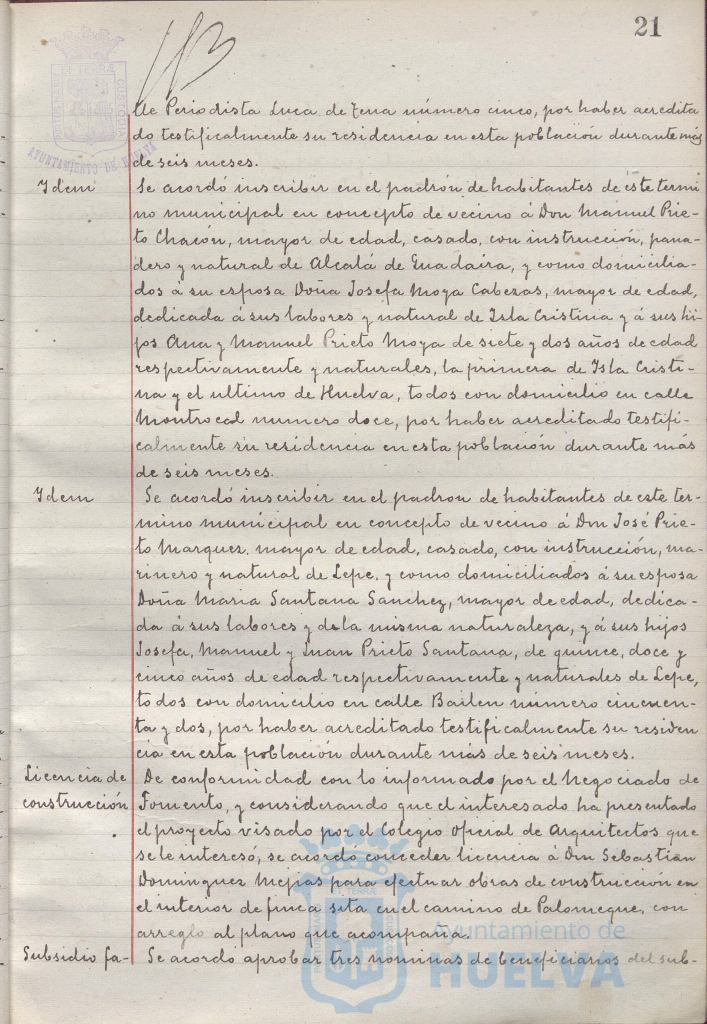 21
de Periodista Luca de Tena número cinco, por haber acredita
do testificalmente su residencia en esta población durante más
de seis meses.
Idem
Se acordó inscribir en el padrón de habitantes de éste termi
no municipal en concepto de vecino á Don Manuel Prie-
to Chacón, mayor de edad, casado, con instrucción, pana-
dero y natural de Alcalá de Guadaira, y como domicilia-
dos á su esposa Doña Josefa Moya Cabezas, mayor de edad,
dedicada á sus labores y natural de Isla Cristina y á sus hi-
jos Ana y Manuel Prieto Moya de siete y dos años de edad
respectivamente y naturales, la primera de Isla Cristi-
na y el ultimo de Huelva, todos con domicilio en calle
Montrocal numero doce, por haber acreditado testifi-
calmente su residencia en esta población durante más
de seis meses.
Idem
Se acordó inscribir en el padron de habitantes de este ter-
mino municipal en concepto de vecino á Don José Prie-
to Marquez, mayor de edad, casado, con instrucción, ma-
rinero y natural de Lepe, y como domiciliados á su esposa
Doña Maria Santana Sanchez, mayor de edad, dedica-
da á sus labores y de la misma naturaleza, y á sus hijos
Josefa, Manuel y Juan Prieto Santana, de quince, doce y
cinco años de edad respectivamente y naturales de Lepe,
todos con domicilio en calle Bailen número cincuen-
ta y dos, por haber acreditado testificalmente su residen
cia en esta población durante más de seis meses.
Licencia de
construcción
De conformidad con lo informado por el Negociado de
Fomento, y considerando que el interesado ha presentado
el proyecto visado por el Colegio Oficial de Arquitectos que
se le interesó, se acordó conceder licencia á Don Sebastian
Dominguez Mejias para efectuar obras de construcción en
el interior de finca sita en el camino de Palomeque, con
arreglo al plano que acompaña.
Subsidio fa-
Se acordó aprobar tres nominas de beneficiarios del sub-
AYUNTAMIENTO DE HUELVA
Ayuntamiento de
HUELVA